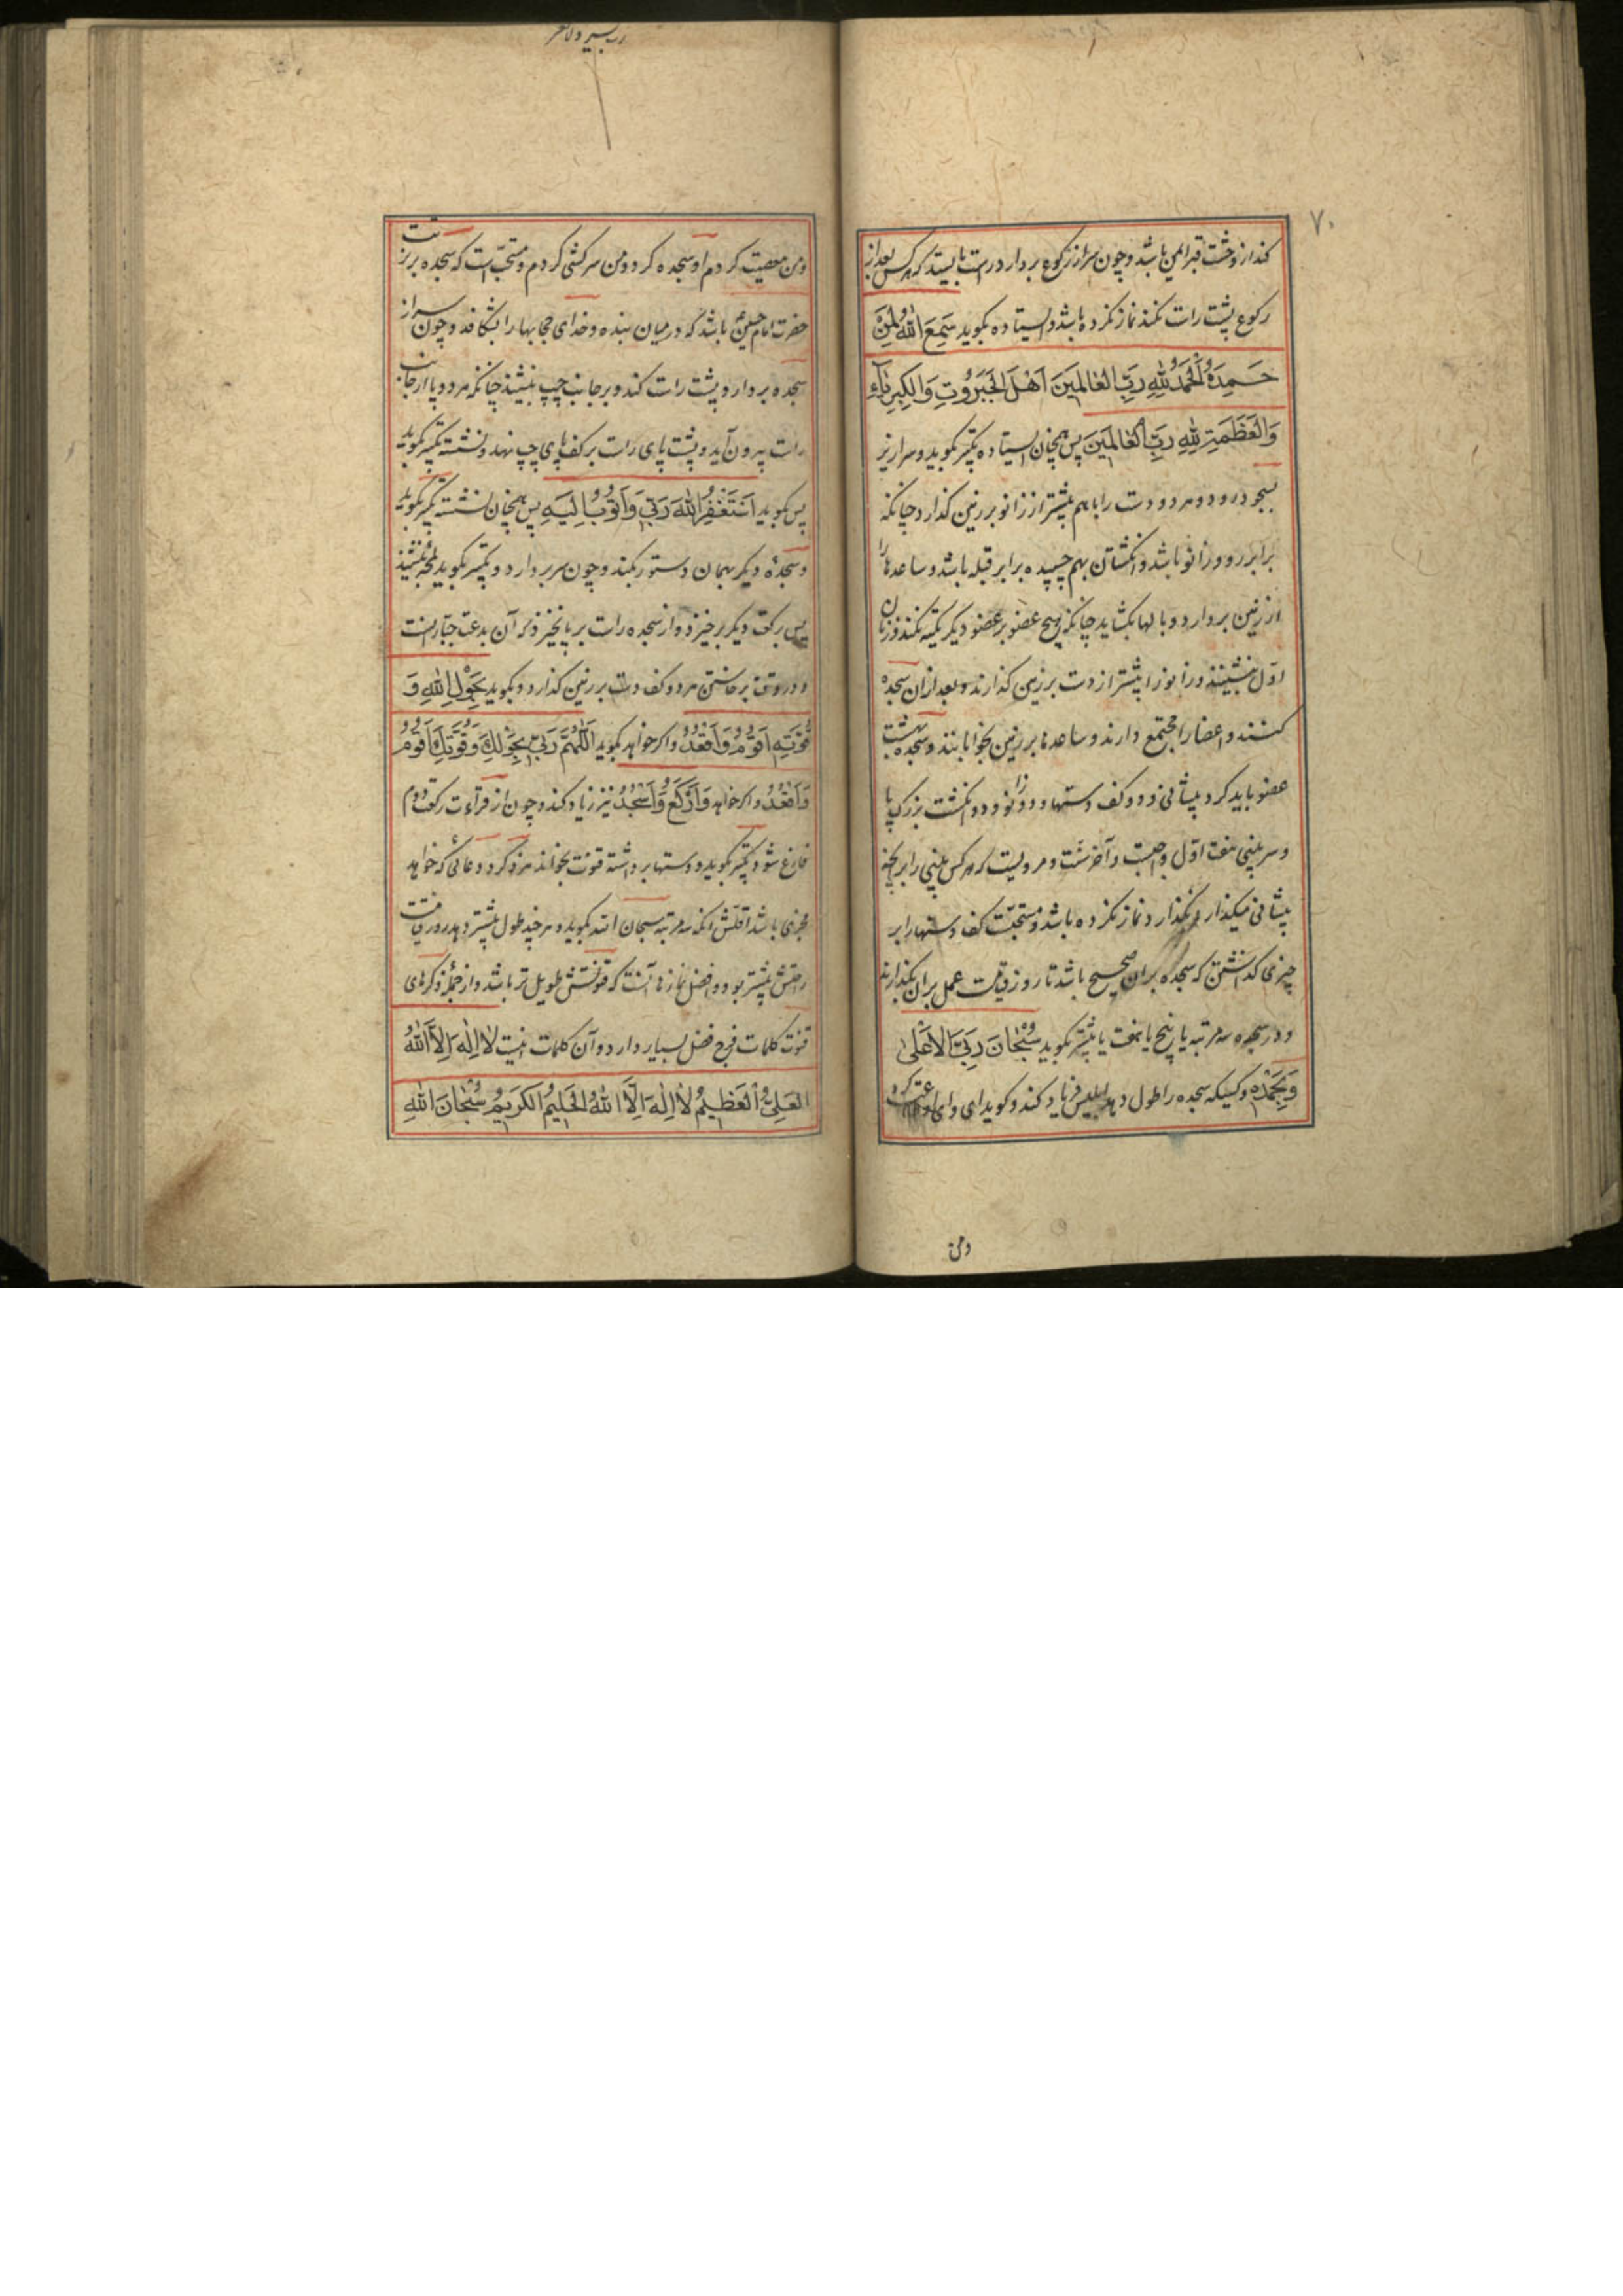 ۷۰
کند از وحشت قبر ایمن باشد و چون سر از رکوع بردارد راست بایستد که هر کس بعد از
رکوع پشت راست نکند نماز نکرده باشد و ایستاده بگوید سَمِعَ اللّٰهُ لِمَنْ
حَمِدَهُ اَلْحَمْدُ لِلّٰهِ رَبِّ الْعٰالَمِینَ اَهْلَ الْجَبَرُوتِ وَالْکِبْرِیٰآءِ
وَالْعَظَمَةِ لِلّٰهِ رَبِّ الْعٰالَمِینَ پس همچنان ایستاده تکبیر بگوید و سرازیر
بسجود رود و هر دو دست را با هم پیشتر از زانو بر زمین گذارد چنانکه
برابر رو و زانو باشد و انگشتان بهم چسپیده برابر قبله باشد و ساعدها را
از زمین بردارد و بالها بگشاید چنانکه هیچ عضو بر عضو دیگر تکیه نکند و زنان
اول بنشینند و زانو را پیشتر از دست بر زمین گذارند و بعد از آن سجده
کنند و اعضا را مجتمع دارند و ساعدها بر زمین بخوابانند و سجده بهشت
عضو باید کرد پیشانی و دو کف دستها و دو زانو و دو انگشت بزرگ پا
و سر بینی هفت اول واجبست و آخر سنت و مرویست که هر کس بینی را برانچه
پیشانی میگذارد نگذارد نماز نکرده باشد و مستحبست کف دستها را بر
چیزی گذاشتن که سجده بر آن صحیح باشد تا روز قیامت عمل بر آن بگذارند
و در سجده سه مرتبه یا پنج یا هفت یا بیشتر بگوید سُبْحٰانَ رَبِّیَ الْاَعْلٰی
وَبِحَمْدِهِ و کسیکه سجده را طول دهد ابلیس فریاد کند و گوید ای وای اطاعت کرد
ومن
رب یسر ولا تعسر
ومن معصیت کردم او سجده کرد و من سرکشی کردم و مستحب است که سجده بر تربت
حضرت امام حسین باشد که در میان بنده و خدای حجابها را بشکافد و چون سر از
سجده بردارد پشت راست کند و بر جانب چپ بنشیند چنانکه هر دو پا از جانب
راست بیرون آید و پشت پای راست بر کف پای چپ نهد و نشسته تکبیر بگوید
پس بگوید اَسْتَغْفِرُ اللّٰهَ رَبِّی وَاَتُوبُ اِلَیْهِ پس همچنان نشسته تکبیر بگوید
و سجدهٔ دیگر بهمان دستور بکند و چون سر بردارد و تکبیر بگوید لمحهٔ بنشیند
پس برکعت دیگر برخیزد و از سجده راست بر پا نخیزد که آن بدعت جباران است
و در وقت برخاستن هر دو کف دست بر زمین گذارد و بگوید بِحَوْلِ اللّٰهِ وَ
قُوَّتِهِ اَقُومُ وَاَقْعُدُ و اگر خواهد بگوید اَللّٰهُمَّ رَبِّی بِحَوْلِکَ وَقُوَّتِکَ اَقُومُ
وَاَقْعُدُ و اگر خواهد وَاَرْکَعُ وَاَسْجُدُ نیز زیاد کند و چون از قرآءت رکعت دوم
فارغ شود تکبیر بگوید و دستها برداشته قنوت بخواند هر ذکر و دعائی که خواهد
مجزی باشد اقلش آنکه سه مرتبه سبحان الله بگوید و هر چند طول بیشتر دهد روز قیامت
راحتش بیشتر بود و افضل نمازها آنست که قنوتش طویل تر باشد و از جملهٔ ذکرهای
قنوت کلمات فرج فضل بسیار دارد و آن کلمات اینست لٰا اِلٰهَ اِلَّا اللّٰهُ
الْعَلِیُّ الْعَظِیمُ لٰا اِلٰهَ اِلَّا اللّٰهُ الْحَلِیمُ الْکَرِیمُ سُبْحٰانَ اللّٰهِ